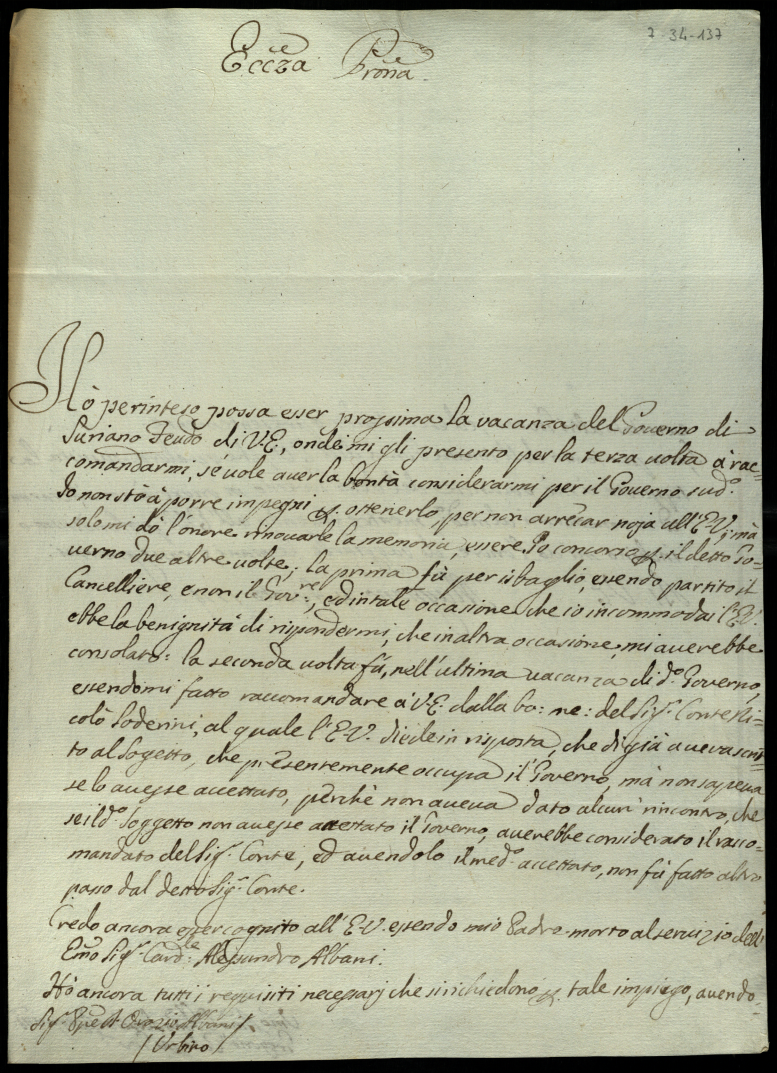 2-34-137
Ecc.za Pron̄a.
Hò perinteso possa esser prossima la vacanza del Governo di
Suriano Feudo di V.E., onde mi gli presento per la terza volta à rac-
comandarmi, sé vole aver la bontà considerarmi per il Governo sud.º
Io non stò à porre impegni p. ottenerlo, per non arrecar noja all'E.V., mà
solo mi dò l'onore rinovarle la memoria, essere Io concorso p. il detto Go-
verno due altre volte; la prima fù per isbaglio, essendo partito il
Cancelliere, e non il Gov:re, ed in tale occasione che io incommodai l'E.V.
ebbe la benignità di rispondermi, che in altra occasione, mi averebbe
consolato: la seconda volta fù, nell'ultima vacanza di d.º Governo,
essendomi fatto raccomandare à V.E. dalla bo: ne: del Sig.r Conte Ni-
colò Soderini, al quale l'E.V. diede in risposta, che di già aveva scrit-
to al Sogetto, che presentemente occupa il Governo, mà non sapeva
se lo avesse accettato, perchè non aveva dato alcun rincontro, che
se il d.º Soggetto non avesse accettato il Governo, averebbe considerato il racco-
mandato del Sig.r Conte, ed avendolo il med.º accettato, non fù fatto altro
passo dal detto Sig.r Conte.
Credo ancora esser cognito all'E.V. essendo mio Padre morto al servizio dell'
Em̄o Sig.r Card:le Alessandro Albani.
Hò ancora tutti i requisiti necessarj che si richiedono p. tale impiego, avendo
Sig.r Pñpe D. Orazio Albani /
/ Urbino /